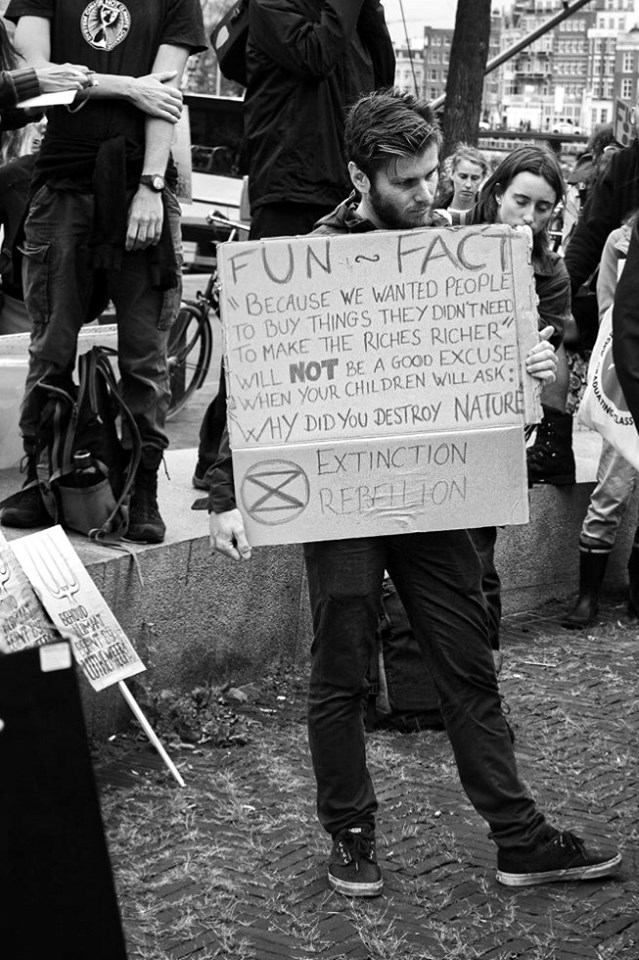 FUN ~ FACT
"BECAUSE WE WANTED PEOPLE
TO BUY THINGS THEY DIDN'T NEED
TO MAKE THE RICHES RICHER"
WILL NOT BE A GOOD EXCUSE
WHEN YOUR CHILDREN WILL ASK:
WHY DID YOU DESTROY NATURE
EXTINCTION
REBELLION
BEHIND